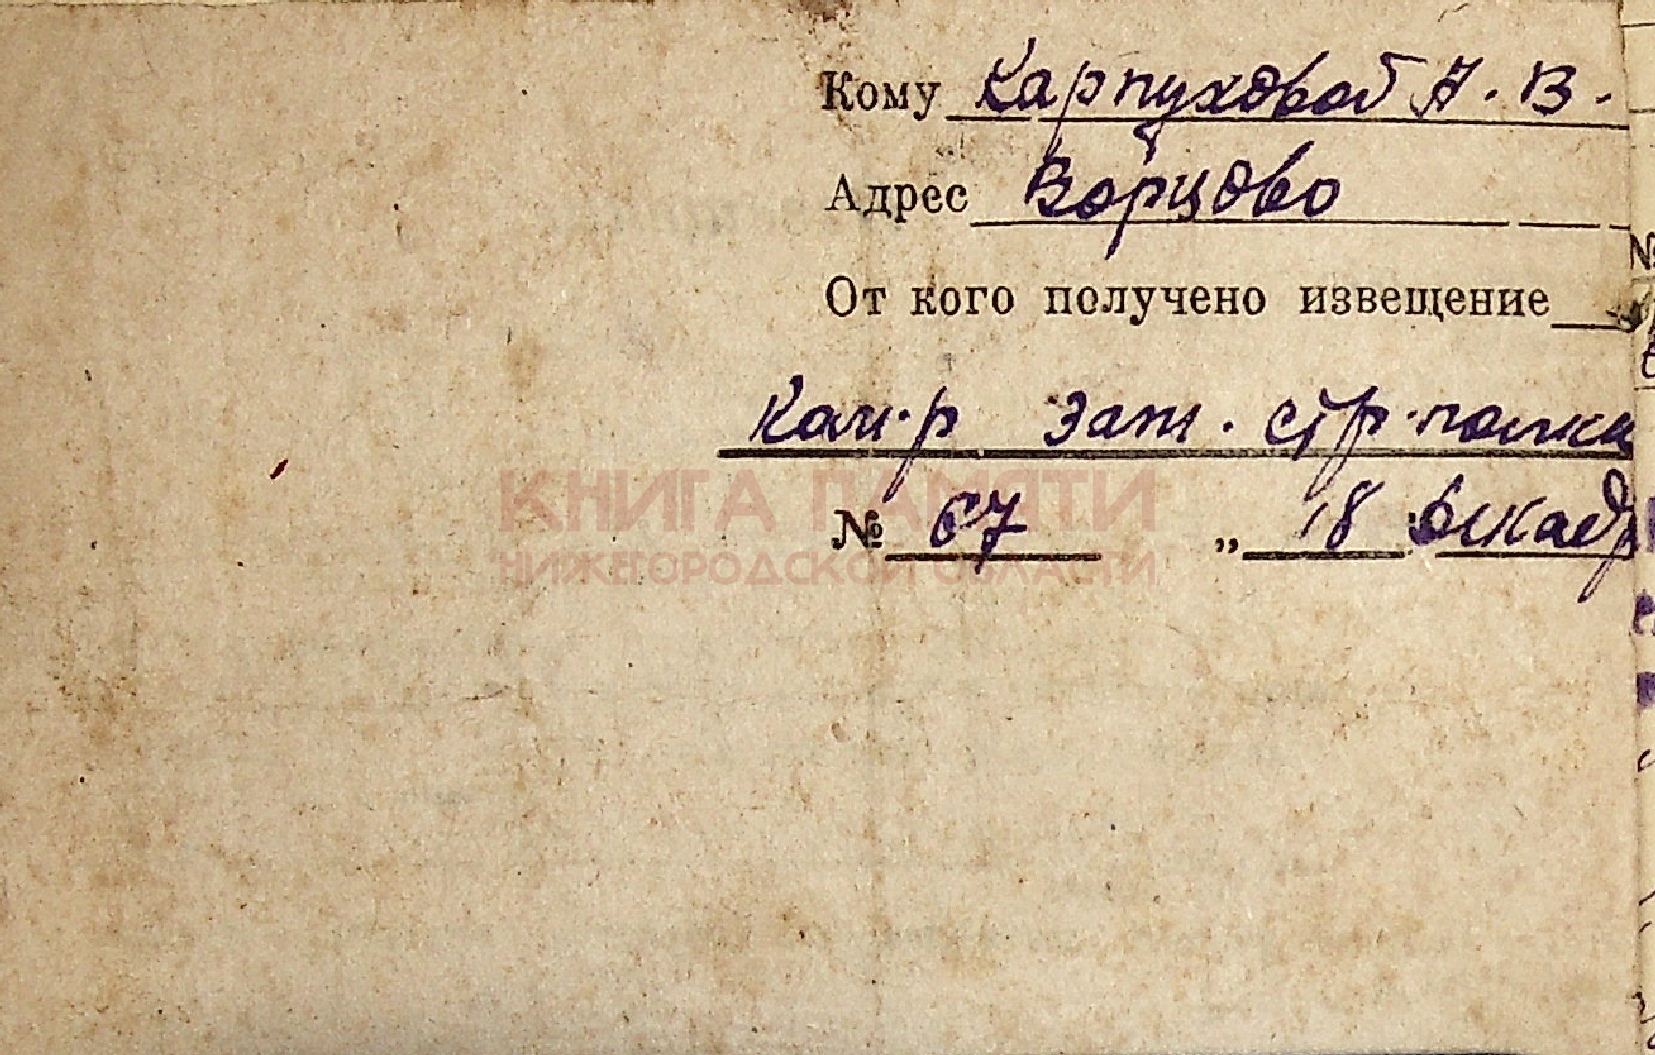 Кому Карпуховой А. В.
Адрес Ворцово
От кого получено извещение
Ком-р зап. стр. полка
№ 67 „ 18 декабр
КНИГА ПАМЯТИ
НИЖЕГОРОДСКОЙ ОБЛАСТИ